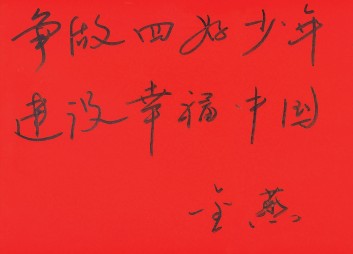 争做四好少年
建设幸福中国
金燕